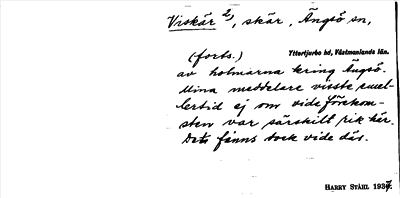 Viskär 2), skär, Ängsö sn,
Yttertjurbo hd, Västmanlands län.
(forts.)
av holmarna kring Ängsö.
Mina meddelare visste emel-
lertid ej om vide förekom-
sten var särskilt rik här.
Det fanns dock vide där.
HARRY STÅHL 1937.